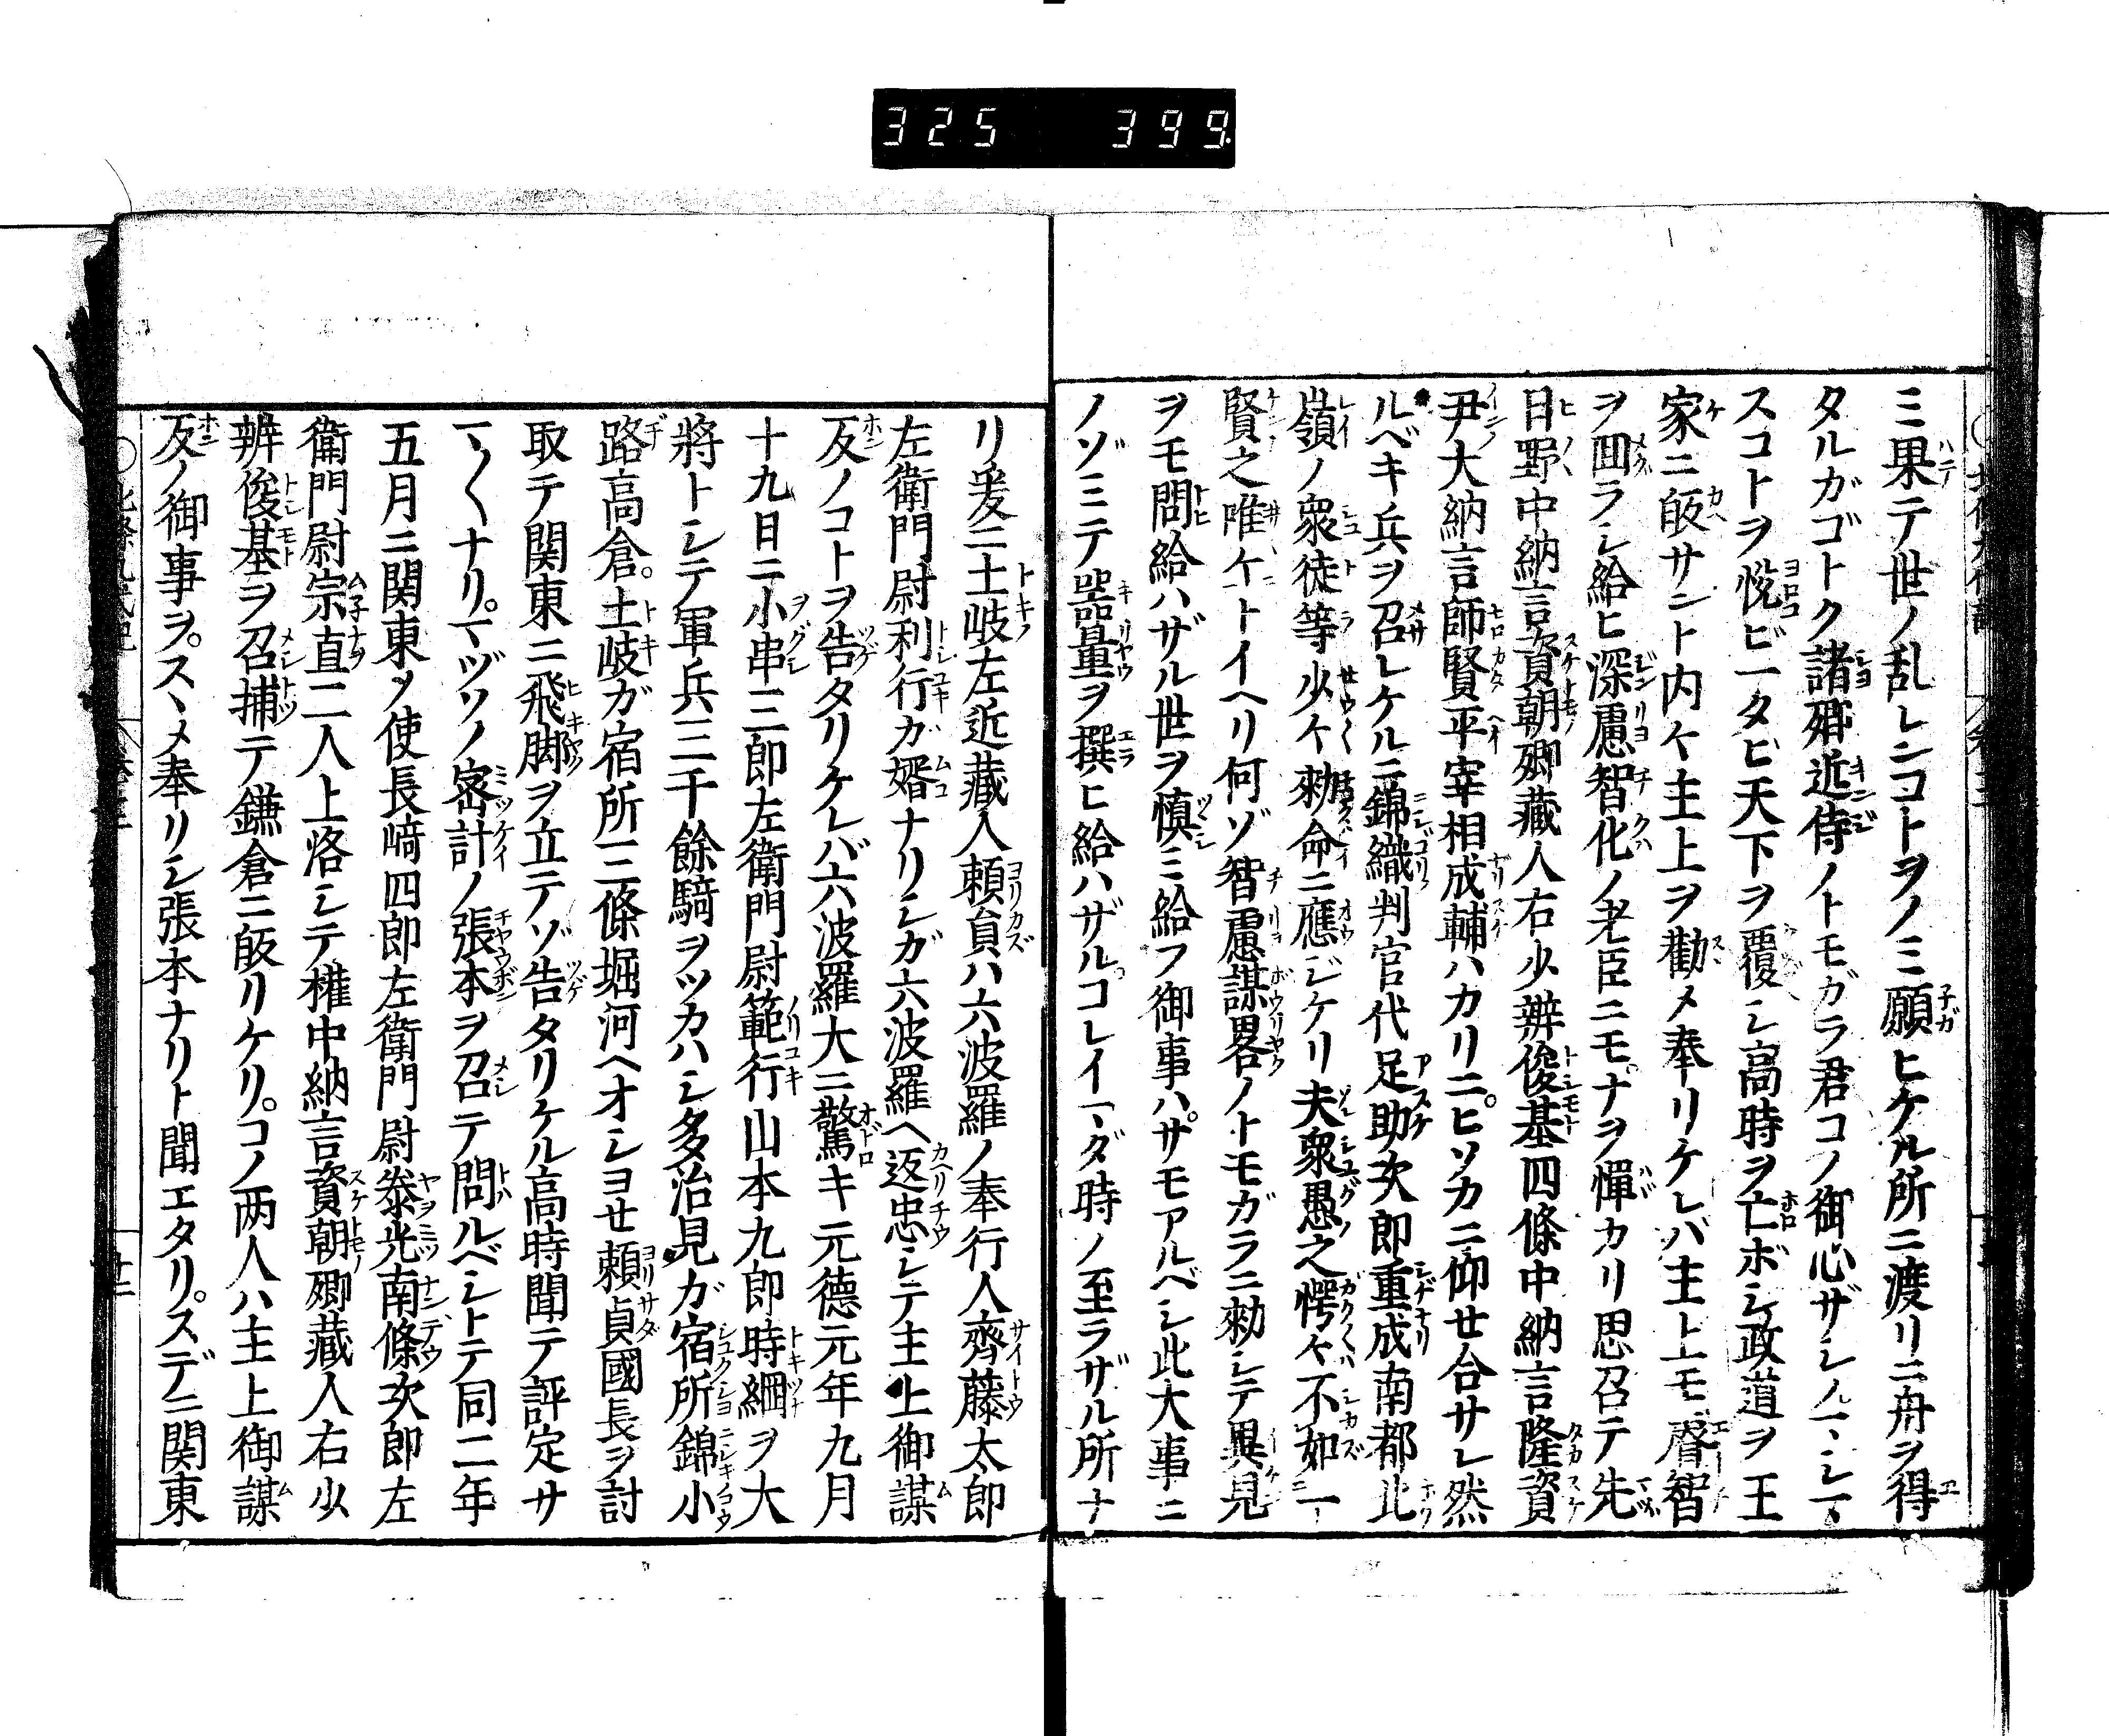 325 399
ミ果テ世ノ乱レンコトヲノミ願ヒケル所ニ渡リニ舟ヲ得
タルガゴトク諸卿近侍ノトモガラ君コノ御心ザシノマヽシマ
スコトヲ悦ビ一タビ天下ヲ覆シ高時ヲ亡ボシ政道ヲ王
家ニ皈サント内々主上ヲ勸メ奉リケレバ主上モ睿智
ヲ囬ラシ給ヒ深慮智化ノ老臣ニモナヲ憚カリ思召テ先
日野中納言資朝卿藏人右少辨俊基四條中納言隆資
尹大納言師賢平宰相成輔ハカリニ。ヒソカニ仰セ合サレ然
ルベキ兵ヲ召レケルニ錦織判官代足助次郎重成南都北
嶺ノ衆徒等少々勅命ニ應ジケリ夫衆愚之愕々不如一
賢之唯ケトイヘリ何ゾ智慮謀畧ノトモガラニ勅シテ異見
ヲモ問給ハザル世ヲ慎ミ給フ御事ハ。サモアルベシ此大事ニ
ノゾミテ器量ヲ撰ヒ給ハザル。コレイマダ時ノ至ラザル所ナ
リ爰ニ土岐左近藏人頼貟ハ六波羅ノ奉行人齊藤太郎
左衛門尉利行カ婿ナリシガ六波羅ヘ返忠シテ主上御謀
反ノコトヲ告タリケレバ六波羅大ニ驚キ元德元年九月
十九日ニ小串三郎左衛門尉範行山本九郎時綱ヲ大
將トシテ軍兵三千餘騎ヲツカハシ多治見ガ宿所錦小
路高倉。土岐ガ宿所三條堀河ヘオシヨせ頼貞國長ヲ討
取テ関東ニ飛脚ヲ立テゾ告タリケル高時聞テ評定サ
マ〱ナリ。マヅソノ密計ノ張本ヲ召テ問ルベシトテ同二年
五月ニ関東ヨリ使長﨑四郎左衛門尉泰光南條次郎左
衛門尉宗直二人上洛シテ權中納言資朝卿藏人右少
辨俊基ヲ召捕テ鎌倉ニ皈リケリ。コノ两人ハ主上御謀
反ノ御事ヲ。スヽメ奉リシ張本ナリト聞エタリ。スデニ関東